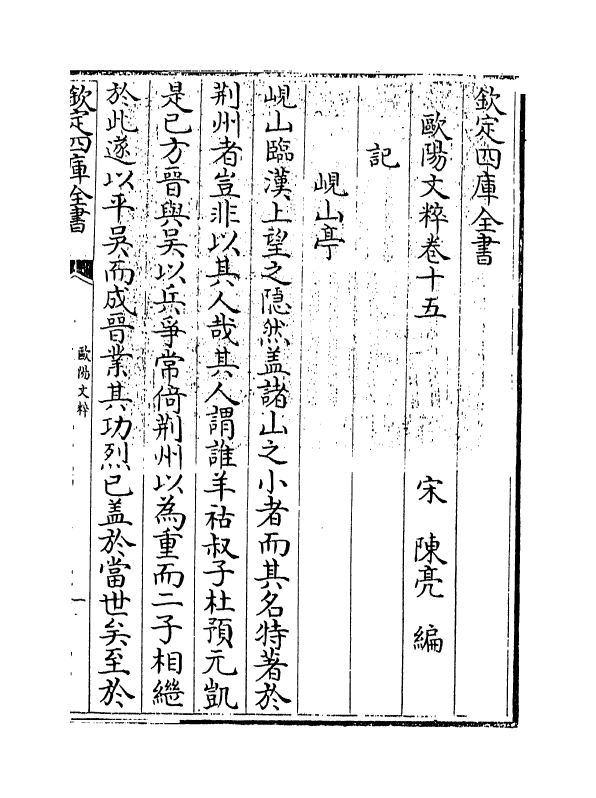 欽定四庫全書
歐陽文粹卷十五
宋 陳亮 編
記
峴山亭
峴山臨漢上望之隱然盖諸山之小者而其名特著於
荆州者豈非以其人哉其人謂誰羊祜叔子杜預元凱
是已方晉與吳以兵爭常倚荆州以為重而二子相繼
於此遂以平吳而成晉業其功烈已盖於當世矣至於
欽定四庫全書
歐陽文粹
一